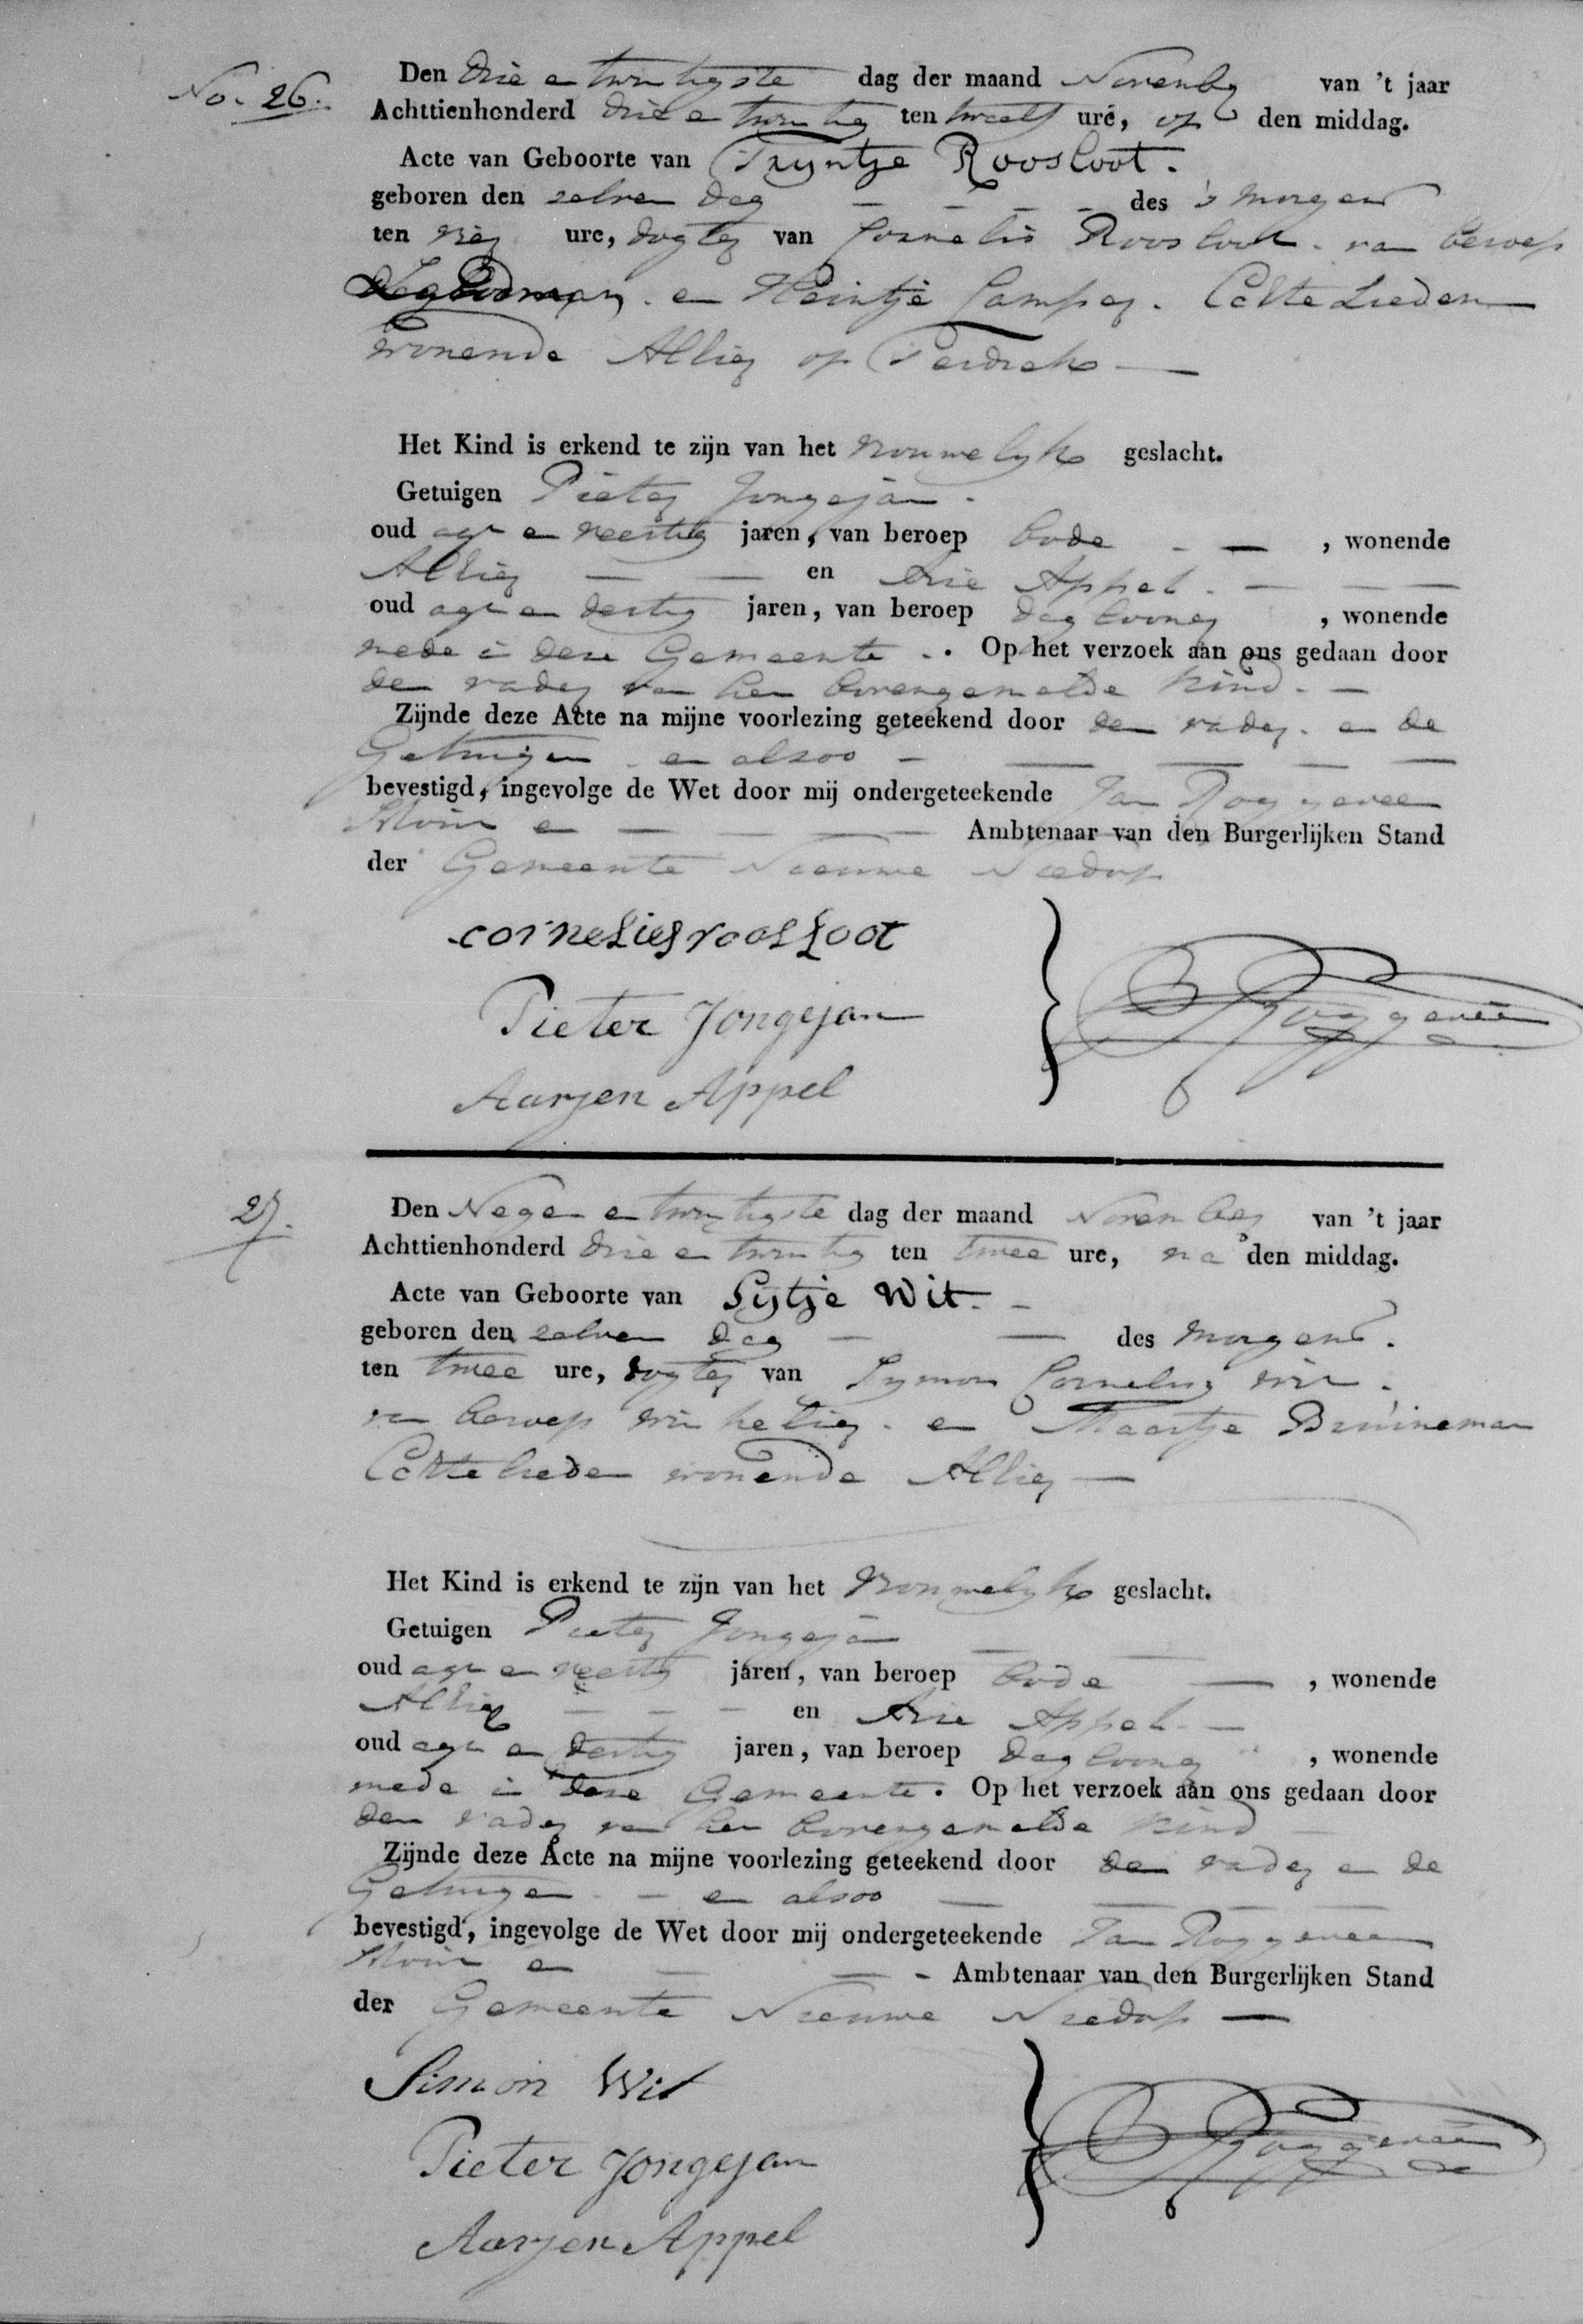 No. 26.
Den drie en twintigste dag der maand November van 't jaar
Achttienhonderd drie en twintig ten twaelf ure, op den middag.
Acte van Geboorte van Tryntje Roosloot.
geboren den zelven dag des 's morgens
ten vier ure, dogter van Cornelis Roosloot. van beroep
en Heintje Camper. Echte Lieden
wonende Alhier op Terdiek
Het Kind is erkend te zijn van het vrouwelyke geslacht.
Getuigen Pieter Jongejan.
oud agt en veertig jaren, van beroep bode , wonende
Alhier en Arie Appel.
oud agt en dertig jaren, van beroep daglooner , wonende
mede in deze Gemeente. Op het verzoek aan ons gedaan door
den vader van het bovengemelde kind.
Zijnde deze Acte na mijne voorlezing geteekend door den vader. en de
Getuigen en alzoo
bevestigd, ingevolge de Wet door mij ondergeteekende Jan Roggeveen
Ambtenaar van den Burgerlijken Stand
der Gemeente Nieuwe Niedorp
cornelies roosLoot
Pieter Jongejan
Roggeveen
Aarjen Appel
27.
Den Negen en twintigste dag der maand November van 't jaar
Achttienhonderd drie en twintig ten twee ure, na den middag.
Acte van Geboorte van Sytje Wit.
geboren den zelven dag des morgens.
ten twee ure, dogter van Symon Cornelisz wit.
van beroep winkelier. en Maartje Bruineman
Echte lieden wonende Alhier
Het Kind is erkend te zijn van het vrouwelyke geslacht.
Getuigen Pieter Jongejan
oud agt en veertig jaren, van beroep bode , wonende
Alhier en Arie Appel.
oud agt en dertig jaren, van beroep daglooner , wonende
mede in deze Gemeente. Op het verzoek aan ons gedaan door
den vader van het bovengemelde kind
Zijnde deze Acte na mijne voorlezing geteekend door den vader en de
Getuigen en alzoo
bevestigd, ingevolge de Wet door mij ondergeteekende Jan Roggeveen
Ambtenaar van den Burgerlijken Stand
der Gemeente Nieuwe Niedorp
Simon Wit
Pieter Jongejan
Roggeveen
Aarjen Appel